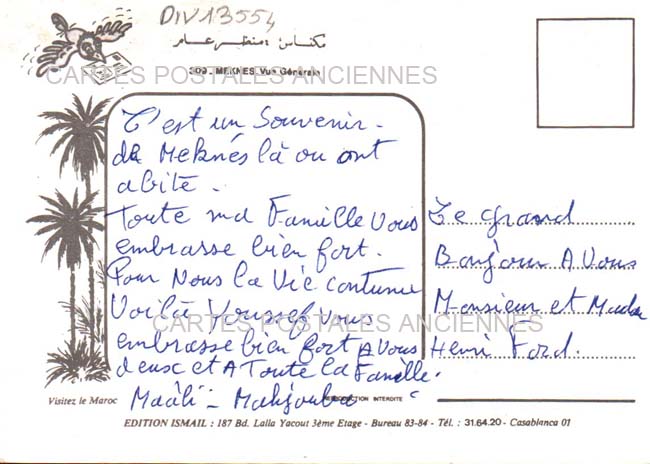 DIV13554
مكناس: منظر عام
309 - MEKNES Vue Générale
CARTES POSTALES ANCIENNES
C'est un Souvenir -
de Meknés là ou ont
abité -
Toute ma Famille Vous
embrasse bien fort.
Pour Nous la Vie continue
Voilà Youssef vous
CARTES POSTALES ANCIENNES
embrasse bien fort A Vous
deux et A Toute la Famille.
Maàli - Mahjouba
Le grand
Bonjour A Vous
Monsieur et Madame
Henri Ford.
Visitez le Maroc
REPRODUCTION INTERDITE
EDITION ISMAIL : 187 Bd. Lalla Yacout 3ème Etage - Bureau 83-84 - Tél. : 31.64.20 - Casablanca 01